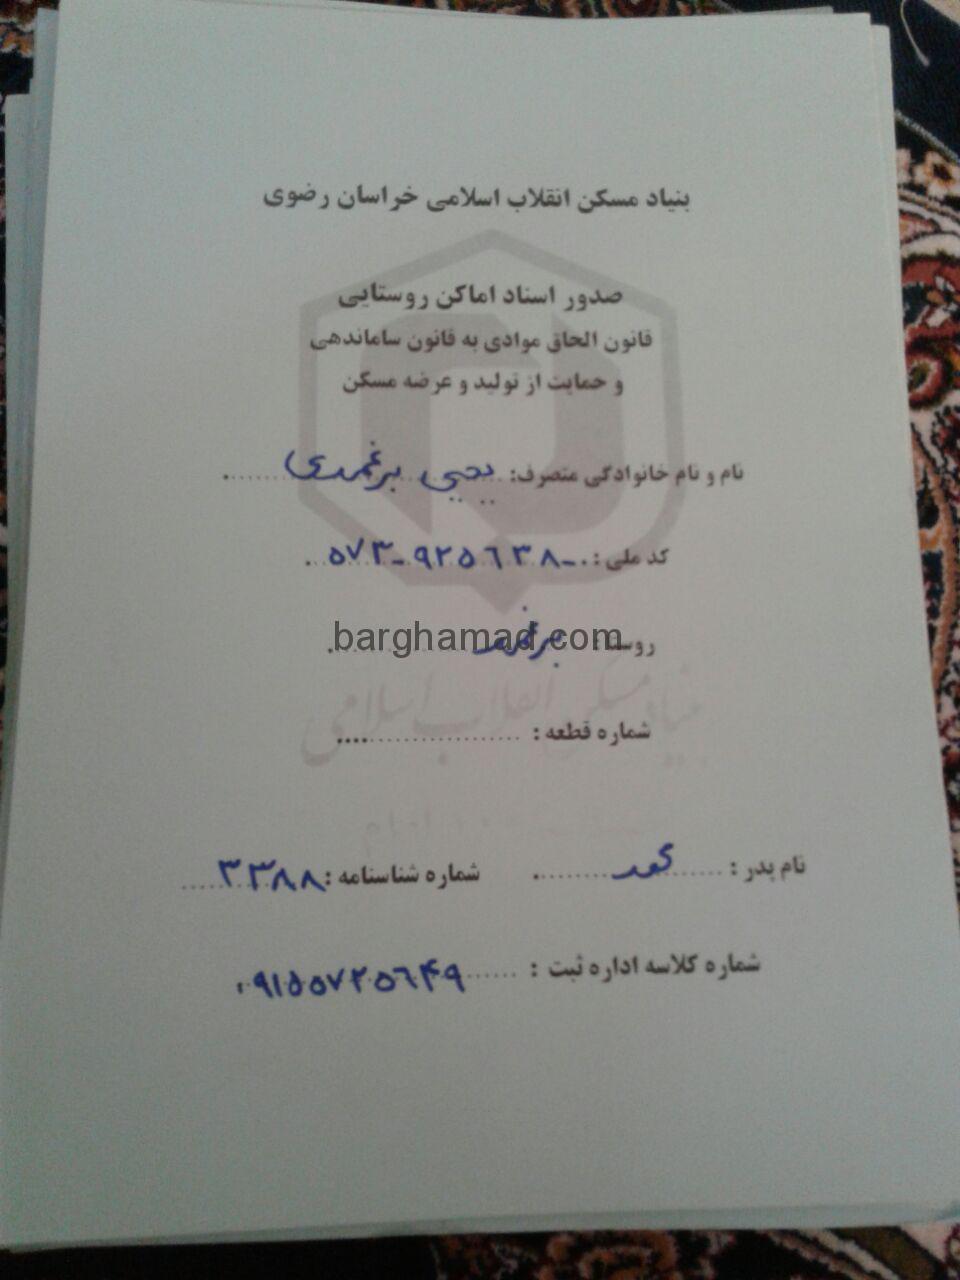 بنیاد مسکن انقلاب اسلامی خراسان رضوی
صدور اسناد اماکن روستایی
قانون الحاق موادی به قانون ساماندهی
و حمایت از تولید و عرضه مسکن
نام و نام خانوادگی متصرف: یحیی برغمدی
کد ملی: ۰-۹۲۵۶۳۸-۵۷۳
روستا: برغمد
barghamad.com
بنیاد مسکن انقلاب اسلامی
شماره قطعه :
نام پدر : محمد شماره شناسنامه : ۳۳۸۸
شماره کلاسه اداره ثبت : ۰۹۱۵۵۷۲۵۶۴۹